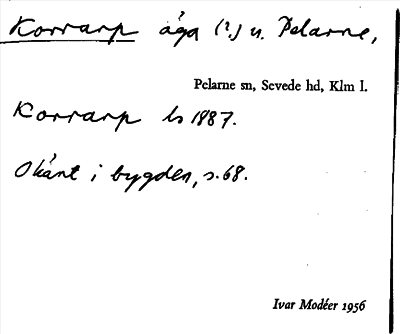 Korrarp äga (?) u. Pelarne,
Pelarne sn, Sevede hd, Klm l.
Korrarp ls 1887.
Okänt i bygden, s. 68.
Ivar Modéer 1956